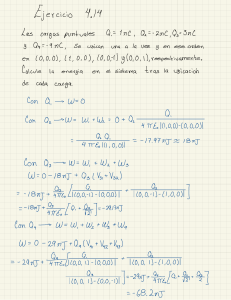 Ejercicio 4,14
Las cargas puntuales Q₁=1nC, Q₂=-2nC, Q₃=3nC
y Q₄=-4nC, se ubican una a la vez y en ese orden
en (0,0,0), (1,0,0), (0,0,-1) y (0,0,1), respectivamente.
Calcule la energía en el sistema tras la ubicación
de cada carga.
Con Q₁ → W=0
Con Q₂ → W = W₁ + W₂ = 0 + Q₂ Q₁ / 4πε₀|(1,0,0)-(0,0,0)|
= Q₁Q₂ / 4πε₀|(1,0,0)| = -17.97nJ ≈ 18nJ
Con Q₃ → W = W₁ + W₂ + W₃
W = 0 - 18nJ + Q₃(V₃₁ + V₃₂)
= -18nJ + Q₃/4πε₀ [Q₁/|(0,0,-1)-(0,0,0)| + Q₂/|(0,0,-1)-(1,0,0)|]
= -18nJ + Q₃/4πε₀ [Q₁ + Q₂/√2] =
Con Q₄ → W = W₁ + W₂ + W₃ + W₄
W = 0 - 29nJ + Q₄(V₄₁ + V₄₂ + V₄₃)
= -29nJ + Q₄/4πε₀ [Q₁/|(0,0,1)-(0,0,0)| + Q₂/|(0,0,1)-(1,0,0)| +
Q₃/|(0,0,1)-(0,0,-1)|] = -29nJ + Q₄/4πε₀ [Q₁ + Q₂/√2 + Q₃/2]
= -68.2nJ